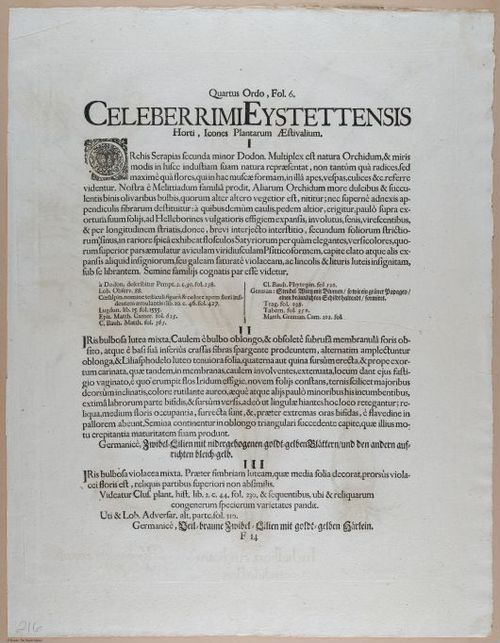 Quartus Ordo, Fol. 6.
CELEBERRIMI EYSTETTENSIS
Horti, Icones Plantarum Æstivalium.
I
ORchis Serapias secunda minor Dodon. Multiplex est natura Orchidum, & miris
modis in hisce industiam suam natura repræsentat, non tantùm quà radices, sed
maximè quà flores, qui in hac nuscæ formam, in illâ apes, vespas, culices &c. referre
videntur. Nostra è Melittiadum familiâ prodit, Aliarum Orchidum more dulcibus & succu-
lentis binis olivaribus bulbis, quorum alter altero vegetior est, nititur; nec supernè adnexis ap-
pendiculis fibrarum destituitur: à quibus demùm caulis, pedem altior, erigitur, paulò supra ex-
ortu sinuatis folijs, ad Helleborines vulgatioris effigiem expansis, involutus, senis, virescentibus,
& per longitudinem striatis, donec, brevi interjecto interstitio, secundum foliorum strictio-
rum situs, in rariore spicâ exhibeat flosculos Satyriorum per quàm elegantes, versicolores, quo-
rum superior pars æmulatur aviculam viridusculam Psitticoformem, capite elato atque alis ex-
pansis aliquid insigniorum, seu galeam saturatè violaceam, ac lincolis & lituris luteis insignitam,
sub se librantem. Semine familijs cognatis par esse videtur,
à Dodon. describitur Pempt. 2. c. 30. fol. 238.
Lob. Observ. 88.
Cæsalpin. nomine testiculi figurâ & colore apem fuci insi-
dentem æmulantis lib. 10. c. 46. fol. 427.
Lugdun. lib. 15. fol. 1555.
Epit. Matth. Camer. fol. 625.
C. Bauh. Matth. fol. 367.
Cl. Bauh. Phytopin. fol 120.
German: Stendel Wurtz mit Blumen / so wie ein grüner Papagey /
einen bräunlichten Schildt haltendt / formiert.
Trag. fol. 298.
Tabern. fol 358.
Matth. German. Cam. 202. fol.
II
IRis bulbosa lutea mixta. Caulem è bulbo oblongo, & obsoletè subrufâ membranulâ foris ob-
sito, atque è basi suâ inferiùs crassas fibras spargente prodeuntem, alternatim amplectuntur
oblonga, & Liliasphodelo luteo tenuiora folia, quaterna aut quina sursum erecta, & prope exor-
tum carinata, quæ tandem, in membranas, caulem involventes, extenuata, locum dant ejus fasti-
gio vaginato, è quo erumpit flos Iridum effigie, novem folijs constans, ternis scilicet majoribus
deorsùm inclinatis, colore rutilante aureo, æquè atque alijs paulò minoribus his incumbentibus,
extimâ labrorum parte bifidis, & sursùm versis, adeò ut lingulæ hiantes hoc loco retegantur: re-
liqua, medium floris occupantia, surrecta sunt, &, præter extremas oras bifidas, è flavedine in
pallorem abeunt. Semina continentur in oblongo triangulari succedente capite, quæ illius mo-
tu crepitantia maturitatem suam produnt.
Germanicè, Zwibel-Lilien mit nidergebogenen goldt-gelben Blättern / und den andern auf-
richten bleich-gelb.
III
IRis bulbosa violacea mixta. Præter fimbriam luteam, quæ media folia decorat, prorsùs viola-
cei floris est, reliquis partibus superiori non absimilis.
Videatur Clus. plant. hist. lib. 2. c. 44. fol. 230. & sequentibus, ubi & reliquarum
congenerum specierum varietates pandit.
Uti & Lob. Adversar. alt. parte. fol. 510.
Germanicè, Veil-braune Zwibel-Lilien mit goldt-gelben Härlein.
F 14
216